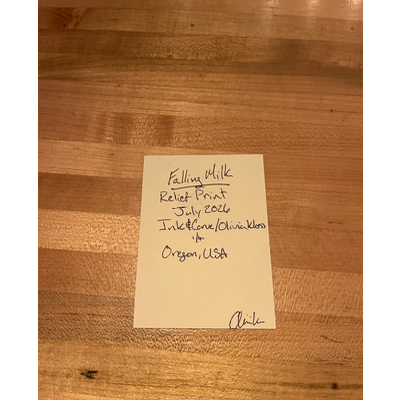 Falling Milk
Relief Print
July 2026
Ink & Carve/Olivia Klens
1/4
Oregon, USA